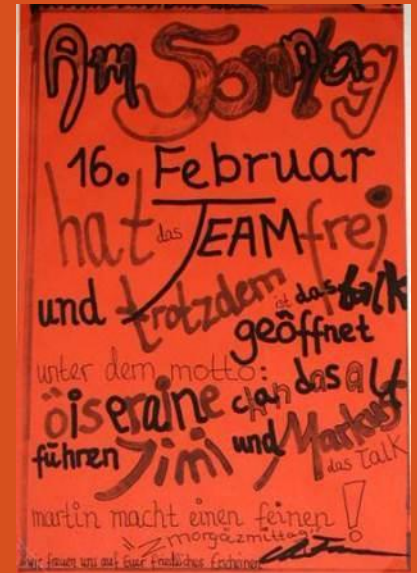 Am Sonntag
16. Februar
hat das TEAM frei
und trotzdem ist das talk
geöffnet
unter dem motto:
öiseraine chan das au
führen Jimi und Markus
das Talk
martin macht einen feinen
zmorgäzmittag!
wir freuen uns auf Euer friedliches Erscheinen